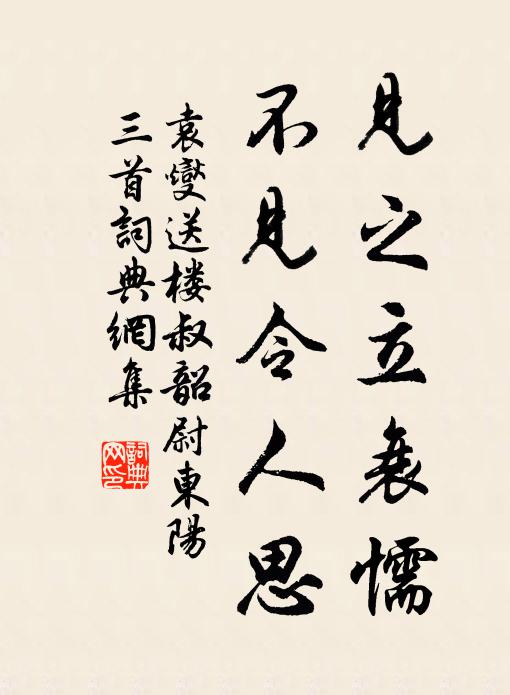 見之立衰懦
不見令人思
袁燮送楼叔韶尉東陽
三首詞典網集
詞典網印